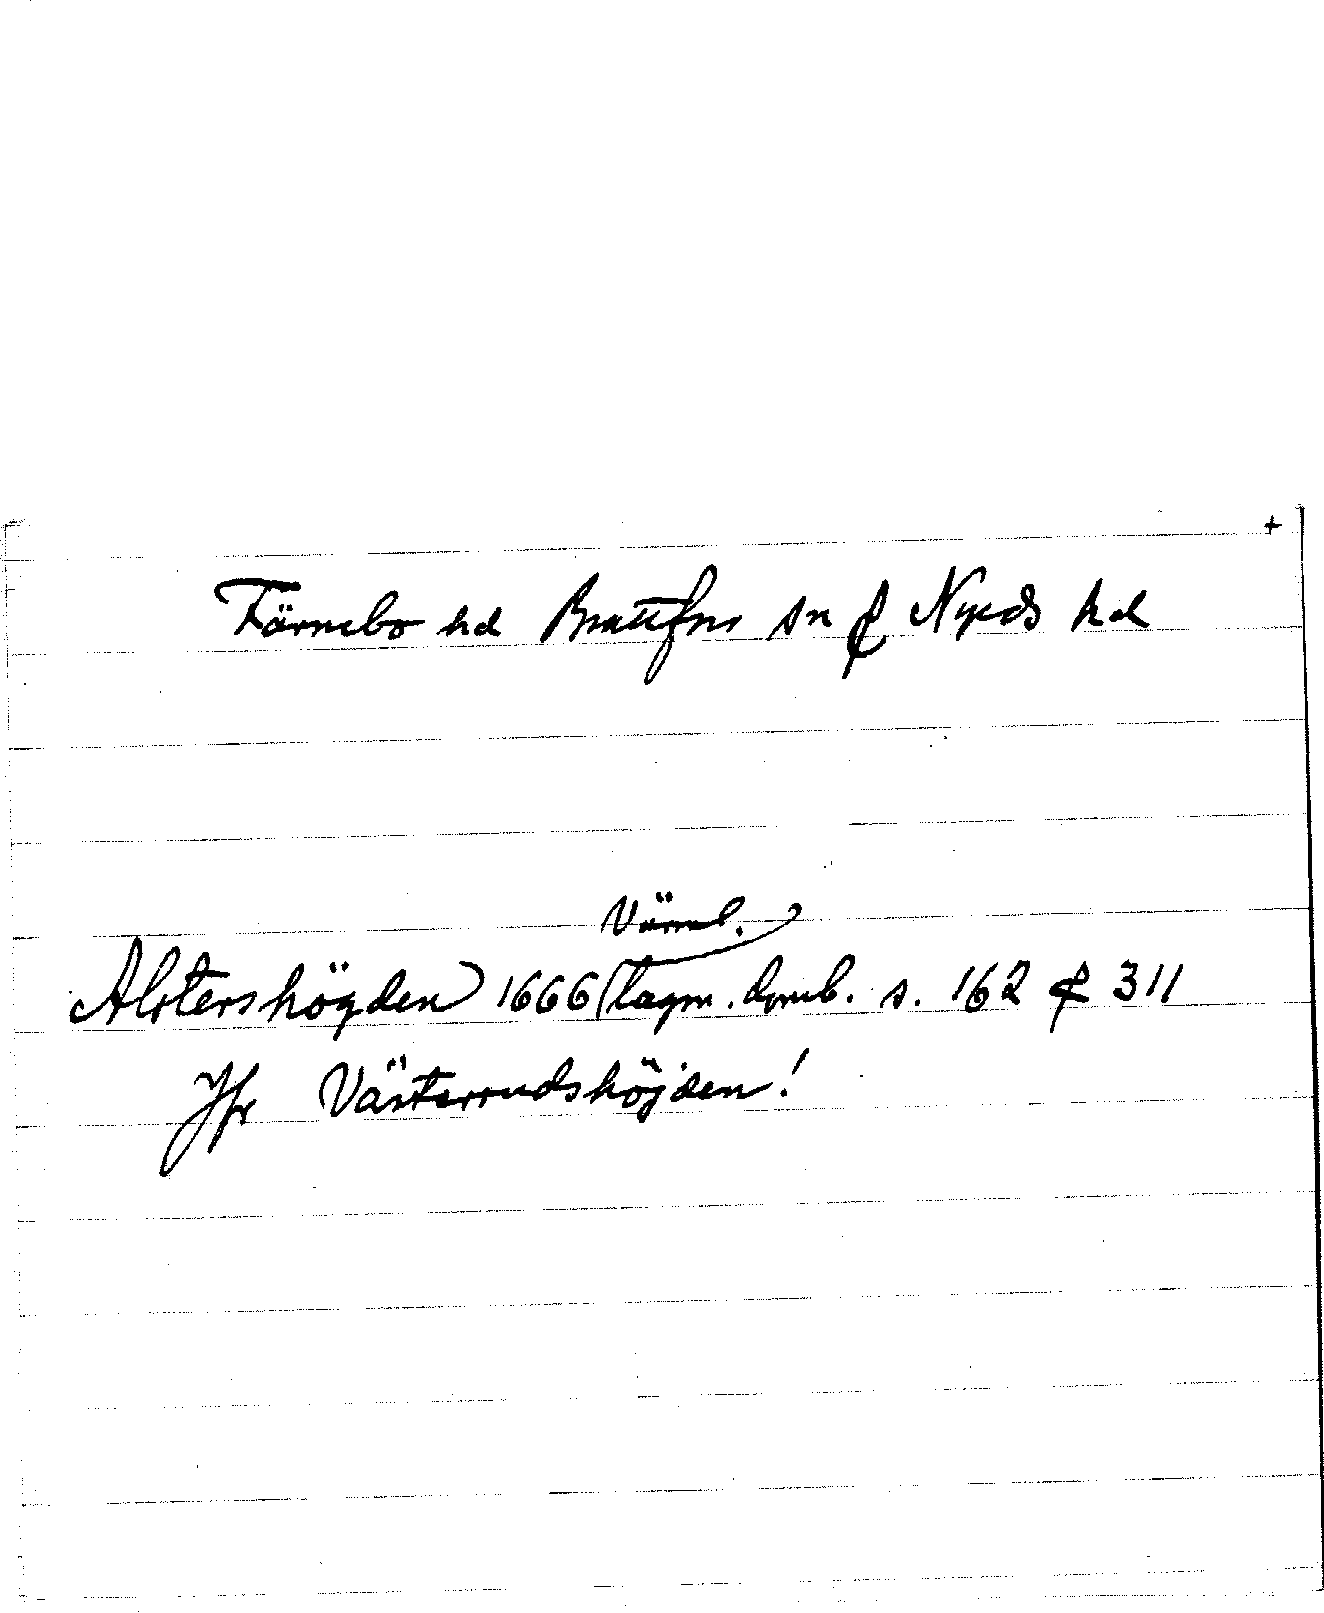 +
Färnebo hd Brattfors sn & Nyeds hd
Värml.
Alstershögden 1666 lagm. domb. s. 162 & 311
Jfr Västerrudshöjden!